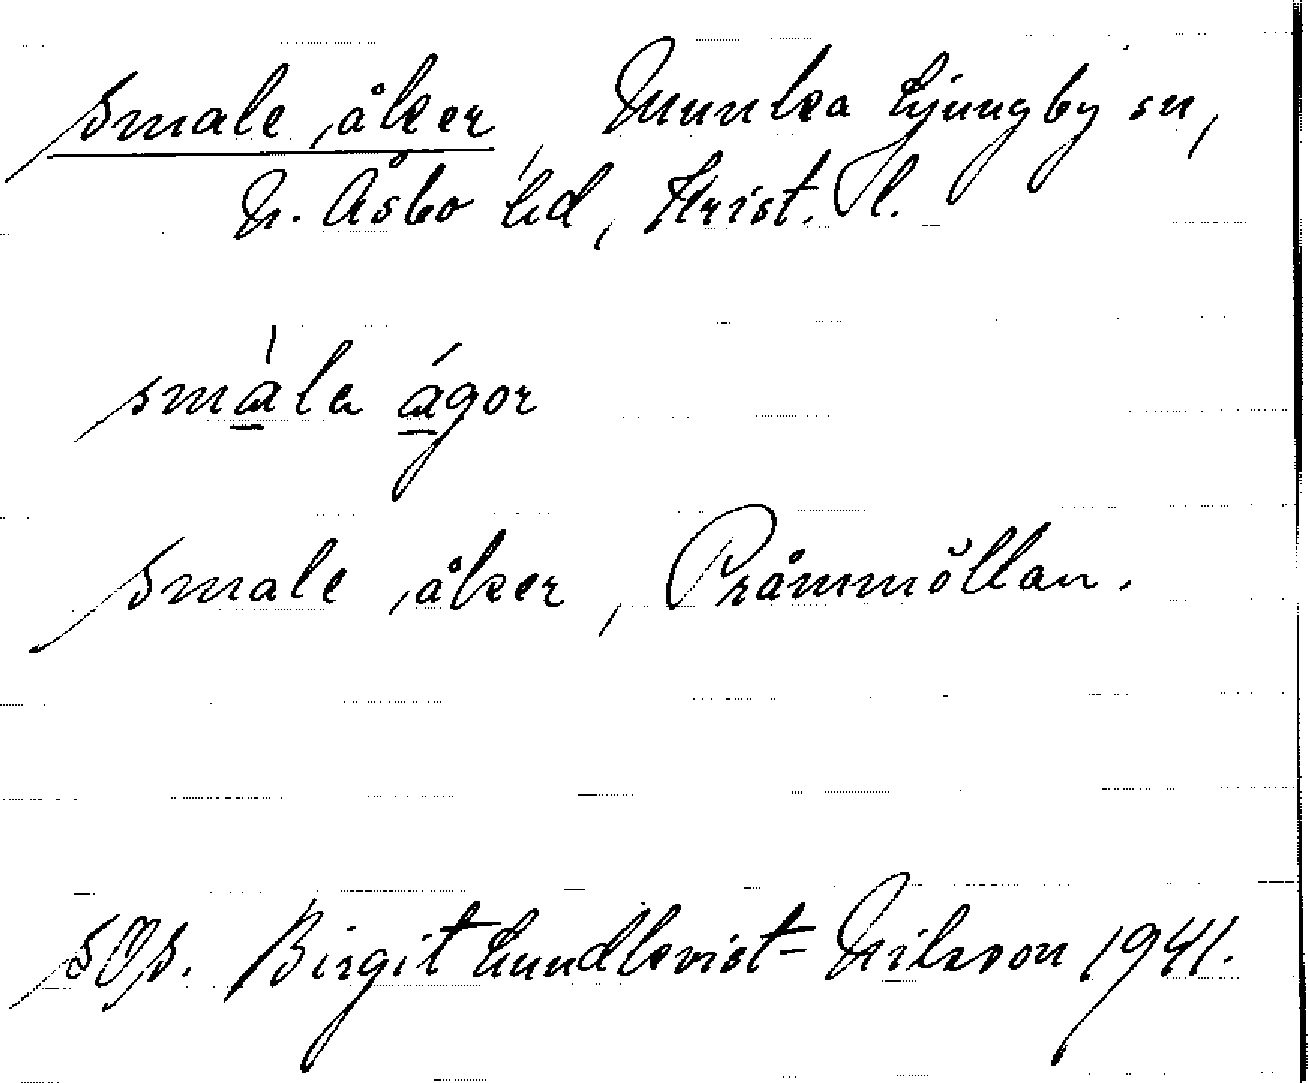 smale ,åker, Munka Ljungby sn,
N. Åsbo hd, Krist. l.
småla ågor
smale ,åker, Pråmmöllan.
Birgit Lundkvist-Nilsson 1941.